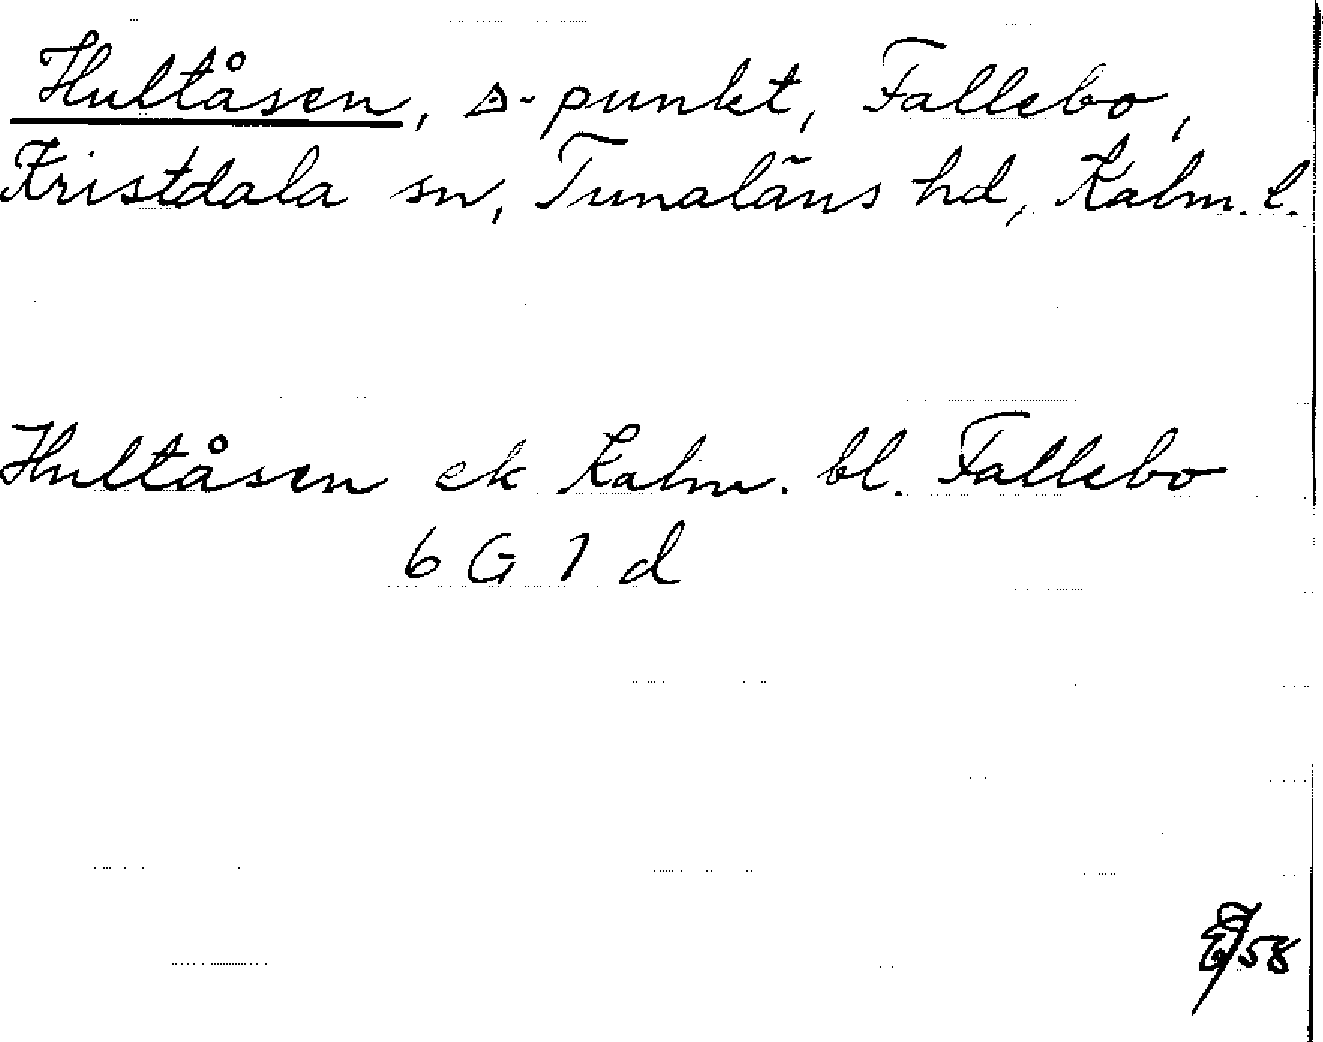 Hultåsen, △-punkt, Fallebo,
Kristdala sn, Tunaläns hd, Kalm. l.
Hultåsen ek Kalm. bl. Fallebo
6 G 1 d
58